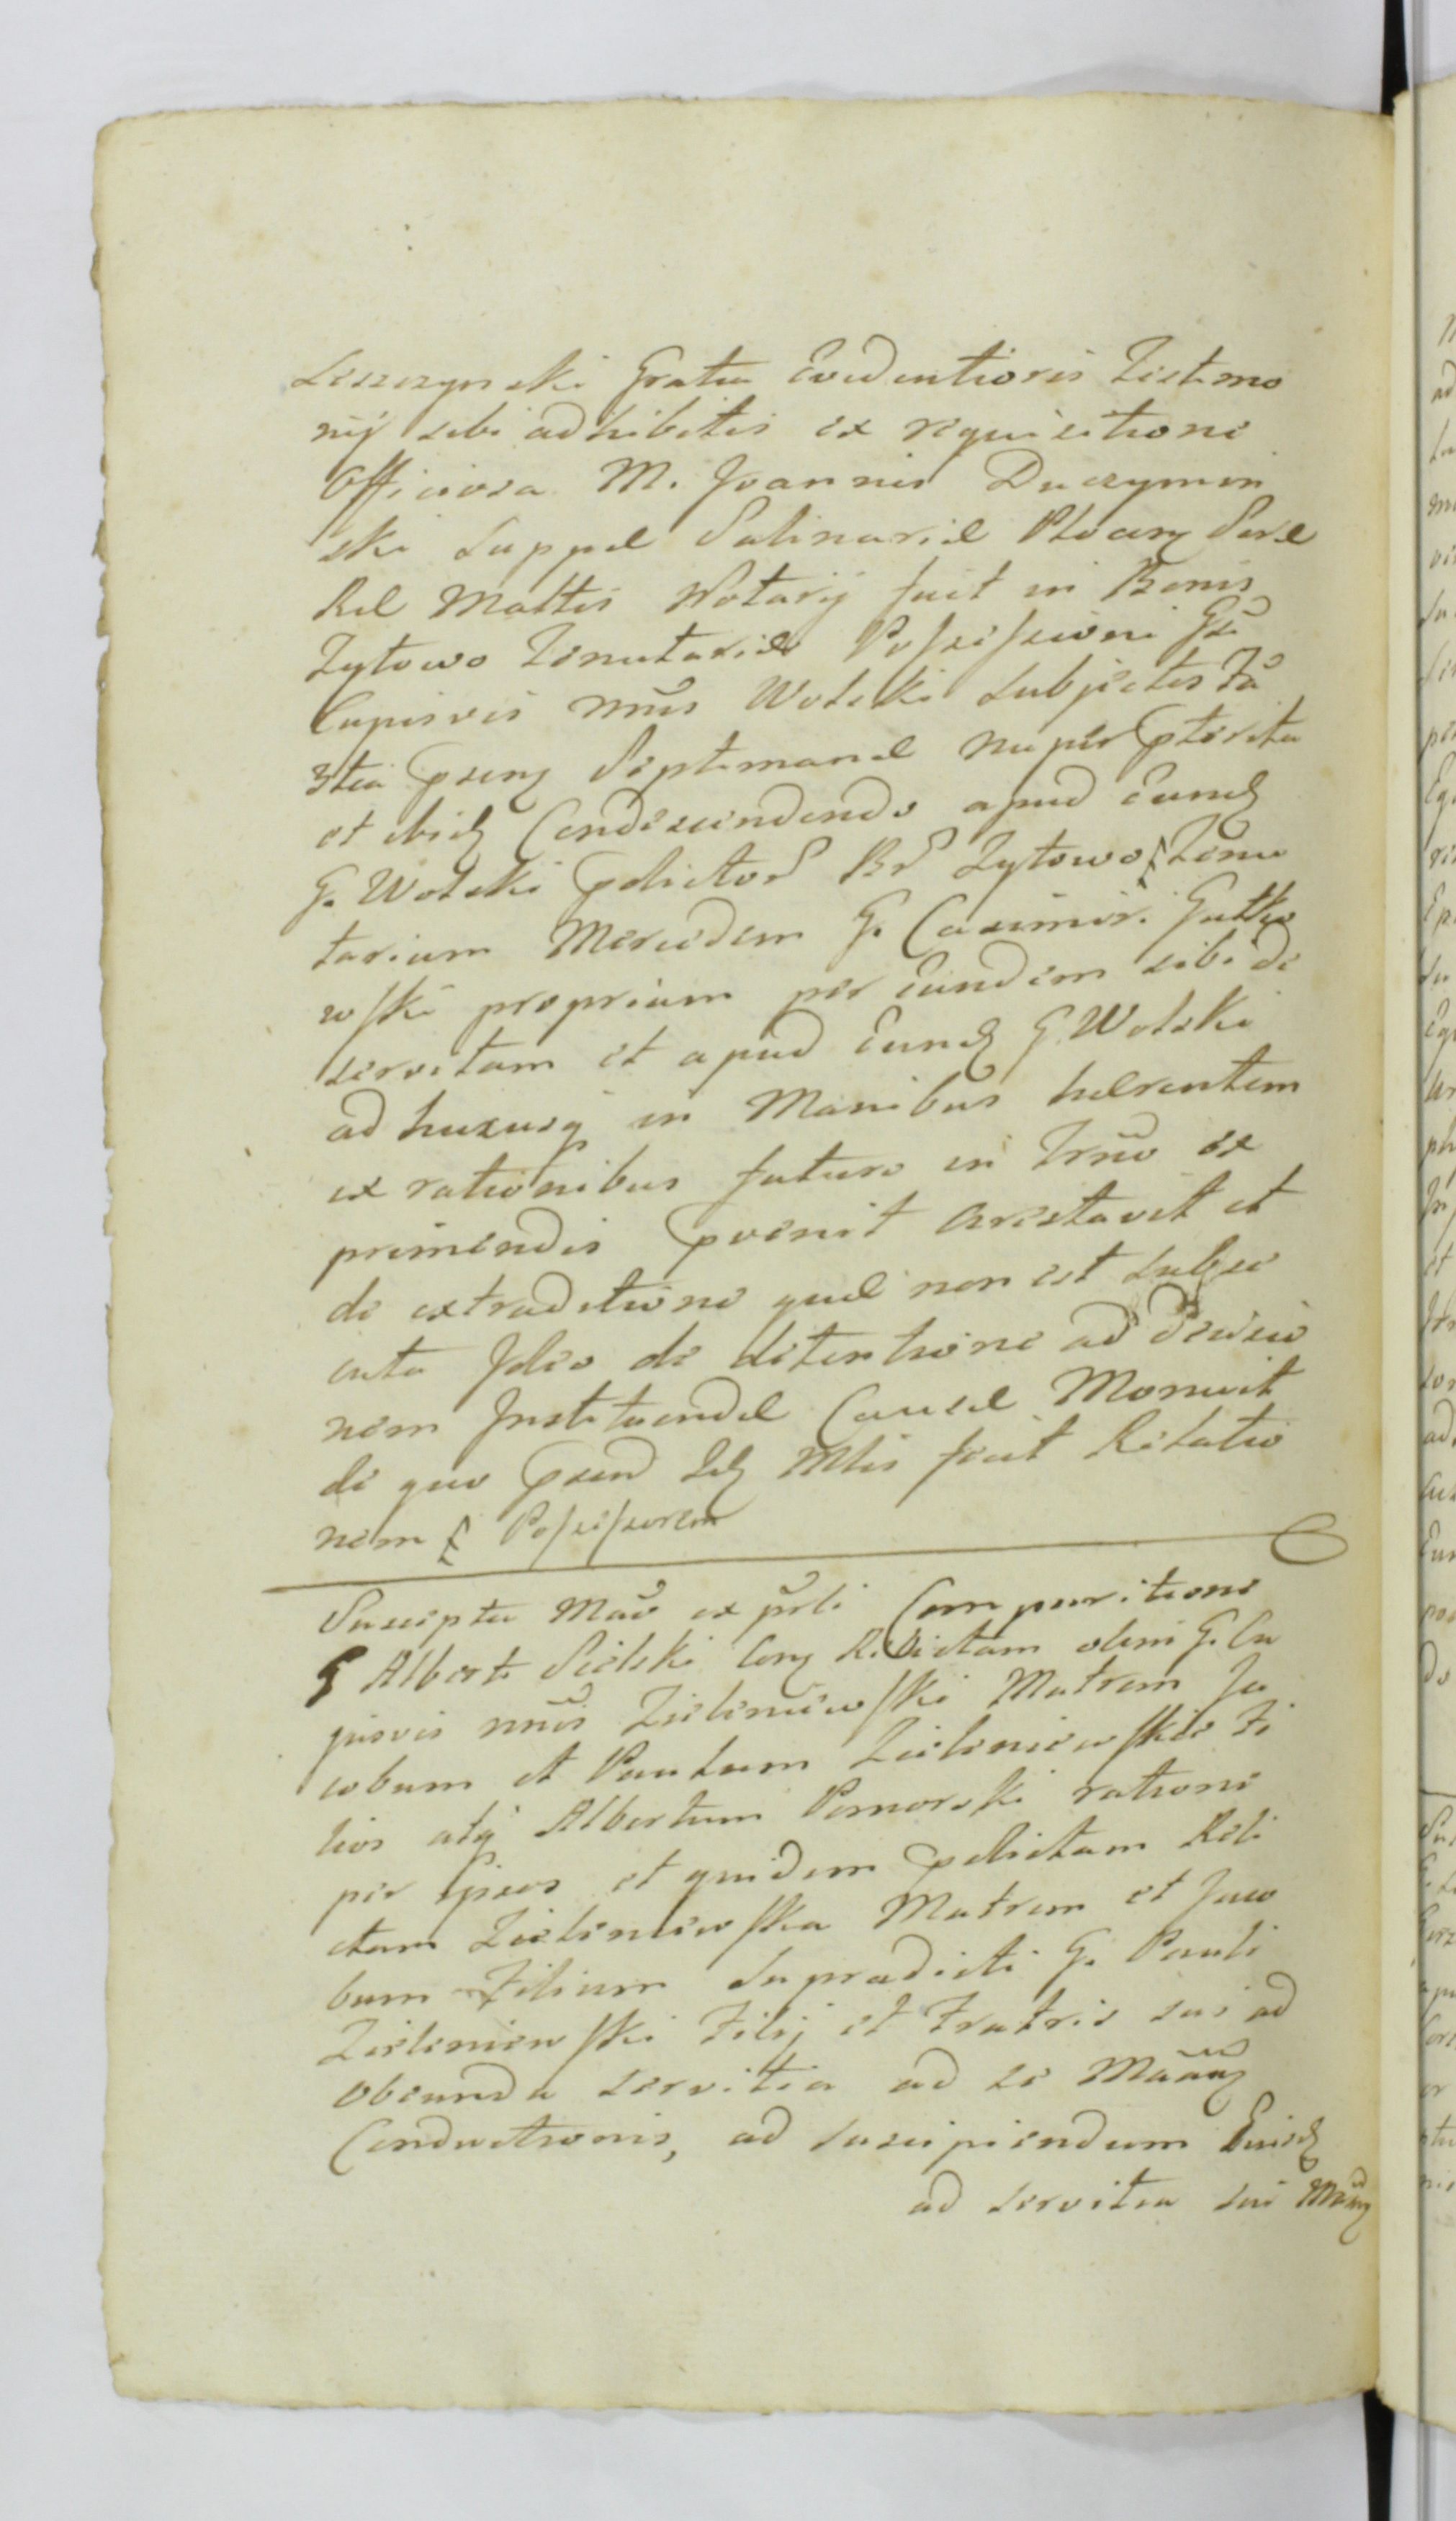 Leszczynski Gratia Evidentioris Testimo
nij sibi adhibitis ex requisitione
Officiosa M. Joannis Duczymin
ski Suppae Salinariae Plocen Sacrae
Rae Mattis Notarij fuit in Bonis
Zytowo Tenutariae Possessioni
Cujusvis Wolski Subjectis
3tia Septimanae nuper pterita
et ibidq Condescendendo apud Eundq
G. Wolski pdictor Zytowo Tenu
tarium Mercedem G. Casimiri Gutko
wski propriam per Eundem sibi de
servitam et apud Eundq G. Wolski
ad hucusq in Manibus haerentem
ex rationibus futuro in Trno ex
primendis pvenit arestavit et
de extraditione quae non est subse
cuta Ideo de detentione ad Decisio
nem Instituendae Causae Monuit
de quo psend Mtis fecit Relatio
nem Possessorem
Suscipta Mao ex prli Comparitione
G Alberti Sielski Relictam olim G. Cu
jusvis nnis Zieleniewski Matrem Ja
cobum et Paulum Zieleniewskie Fi
lios atq Albertum Pomorski ratione
per ipsos et quidem pdictam Reli
ctam Zieleniewska Matrem et Jaco
bum Filium Supradicti G. Pauli
Zieleniewski Filij et Fratris sui ad
obeunda servitia ad se
Conductionis, ad suscipiendum Eundq
ad servitia sui